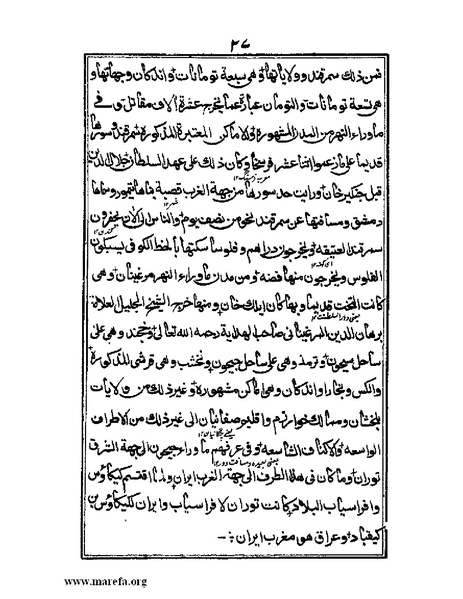 ٢٧
فمن ذلك سمرقند وولاياتها وهي سبعة تومانات واندكان وجهاتها و
هي تسعة تومانات والتومان عبارة عما يخرج عشرة آلاف مقاتل و في
ما وراء النهر من المدن المشهورة والاماكن المعتبرة المذكورة سمرقند وسورها
قديما على ما زعموا اثنا عشر فرسخا وكان ذلك على عهد السلطان جلال الدين
قبل جنكيز خان ورأيت حد سورها من جهة الغرب قصبة بناها تيمور وسماها
دمشق ومسافتها عن سمرقند نحو من نصف يوم والناس الى الآن يحفرون
سمرقند العتيقة ويخرجون دراهم وفلوسا سكتها بالخط الكوفي يسبكون
الفلوس ويخرجون منها فضة ومن مدن ما وراء النهر مرغينان وهي
كانت التخت قديما وبها كان ايلك خان ومنها خرج الشيخ الجليل العلامة
برهان الدين المرغيناني صاحب الهداية رحمه الله تعالى وخجند وهي على
ساحل سيحون وترمذ وهي على ساحل جيحون ونخشب وهي قرشي المذكورة
والكس وبخارا واندكان وهي اماكن مشهورة وغير ذلك من ولايات
بلخشان وممالك خوارزم واقليم صغانيان الى غير ذلك من الاطراف
الواسعة والاكناف الشاسعة وفي عرفهم ما وراء جيحون الى جهة الشرق
توران وما كان في هذا الطرف الى جهة الغرب ايران ولما اقتسم كيكاؤس
وافراسياب البلاد كانت توران لافراسياب وايران لكيكاؤس بن
كيقباد وعراق هو مغرب ايران :-
www.marefa.org